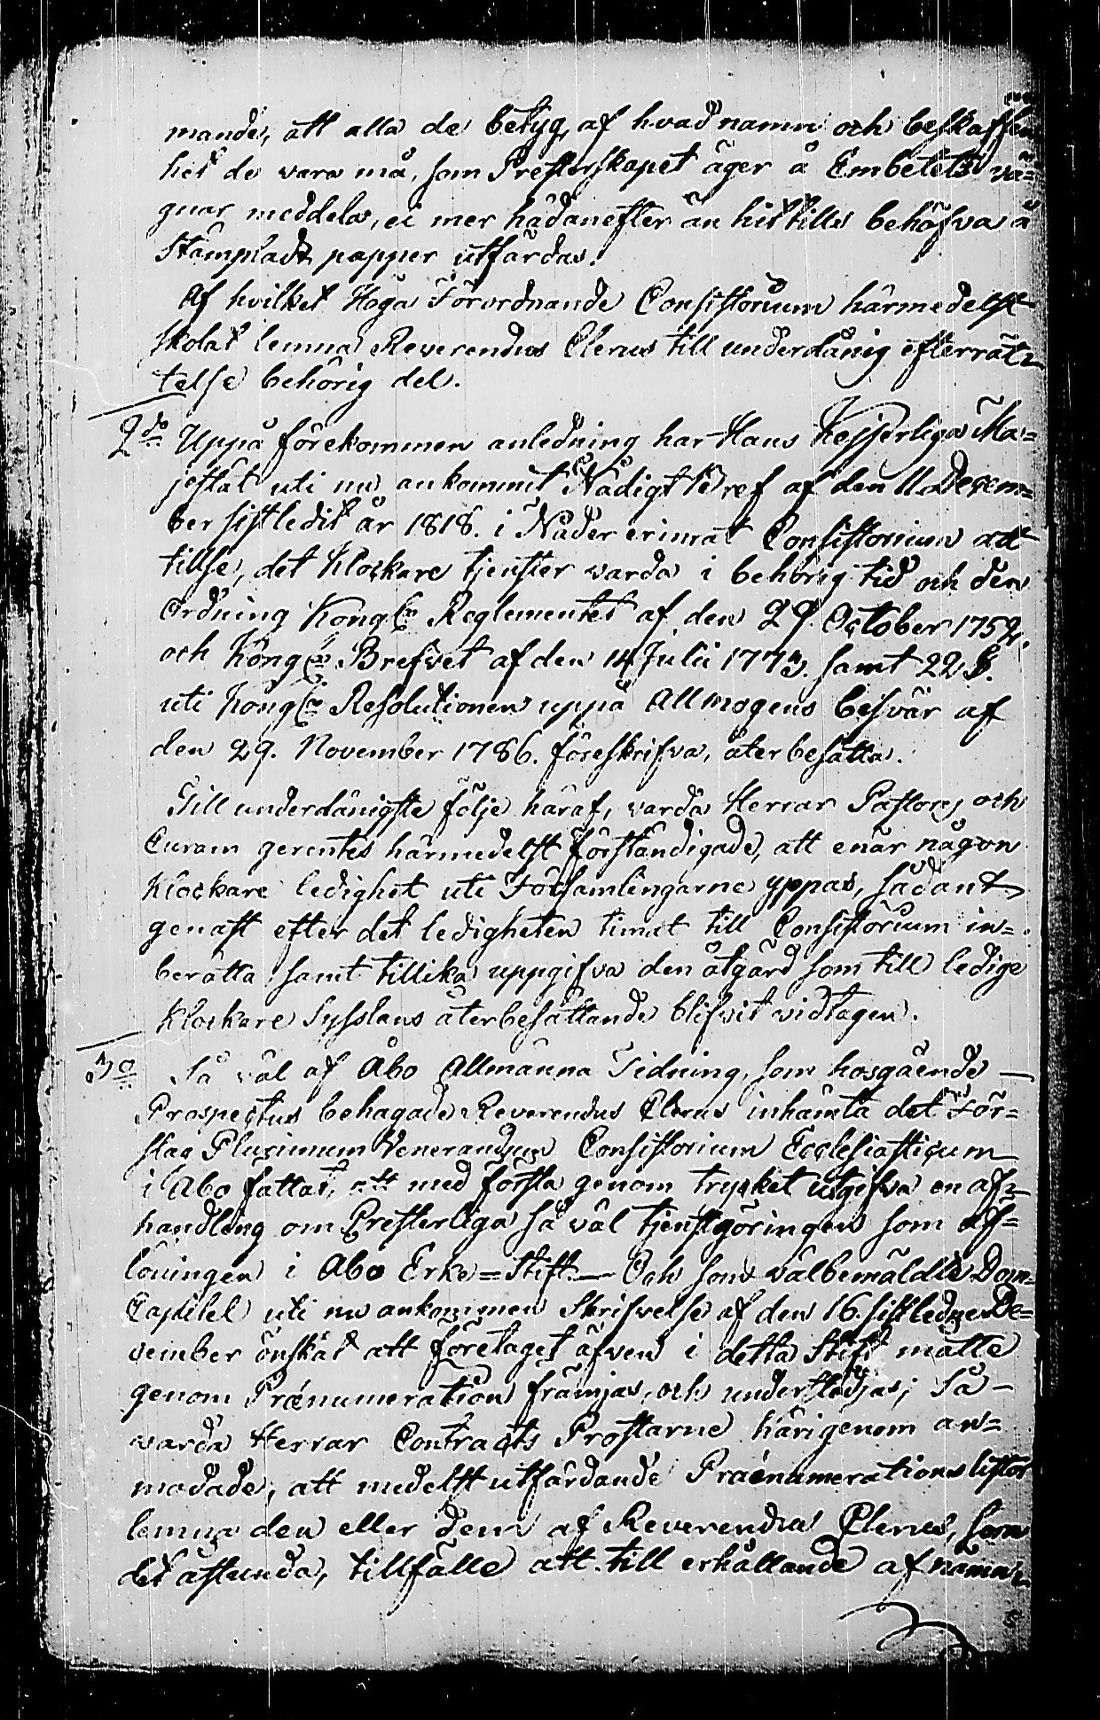 mande, att alla de betyg, af hvad namn och beskaffen
het de vara må, som Presterskapet äger å Embetets vä=
gnar meddela, ei mer hädanefter än hittills behöfva å
Stämpladt papper utfärdas.
Af hvilket Höga Förordnande Consistorium härmedelst
skolat lemna Reverendus Clerus till underdånig efterrät=
telse behörig del.
2do Uppå förekommen anledning har Hans Kejserliga Ma=
jestät uti nu ankommit Nådigt Bref af den 11 Decem=
ber sistledit år 1818. i Nåder erinrat Consistorium att
tillse, det Klockare tjenster varda i behörig tid och den
Ordning Kongl. Reglementet af den 27 October 1752,
och Kongl. Brefvet af den 14 Julii 1773. samt 22 §.
uti Kongl. Resolutionen uppå Allmogens besvär af
den 29. November 1786. föreskrifva, återbesatta.
Till underdånigste följe häraf, varda Herrar Pastorer och
Curam gerentes härmedelst förständigade, att enär någon
Klockare ledighet uti Församlingarne yppas, sådant
genast efter det ledigheten timat till Consistorium in=
berätta samt tillika uppgifva den åtgärd som till ledige
Klockare Sysslans återbesättande blifvit vidtagen.
3o Så väl af Åbo Allmänna Tidning, som hosgående
Prospectus behagade Reverendus Clerus inhämta det För=
slag Plurimum Venerandum Consistorium Ecclesiasticum
i Åbo fattat, att med första genom trycket utgifva en af=
handling om Presterliga så väl tjenstgöringen som af=
löningen i Åbo Erke=Stift. — Och som välbemäldte Dom=
Capitel uti nu ankommen Skrifvelse af den 16. sistledne De=
cember önskat att företaget äfven i detta Stift måtte
genom Prænumeration främjas och understödjas; Så —
varda Herrar Contracts Prostarne härigenom an=
modade, att medelst utfärdande Prænumerations listor
lemna den eller dem af Reverendus Clerus, som
det åstunda, tillfälle att till erhållande af nämn=